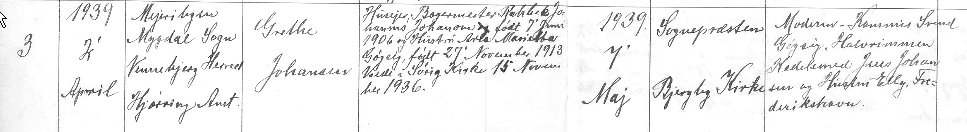 3
1939
2'
April
Mejeribyen
Mygdal Sogn
Vennebjerg Herred
Hjørring Amt.
Grethe
Johansen
Husejer, Bagermester Jo-
hannes Johansen født 7' Juni
1906 og Hustru Marietha
Gøgsig, født 27' November 1913
Viede i Kirke 15' Novem
ber 1936.
1939
7'
Maj
Sognepræsten
Bjergby Kirke
Moderen - Svend
Gøgsig, Halvrimmen
Jens Johan
sen og Hustru Elly, Fre-
derikshavn.